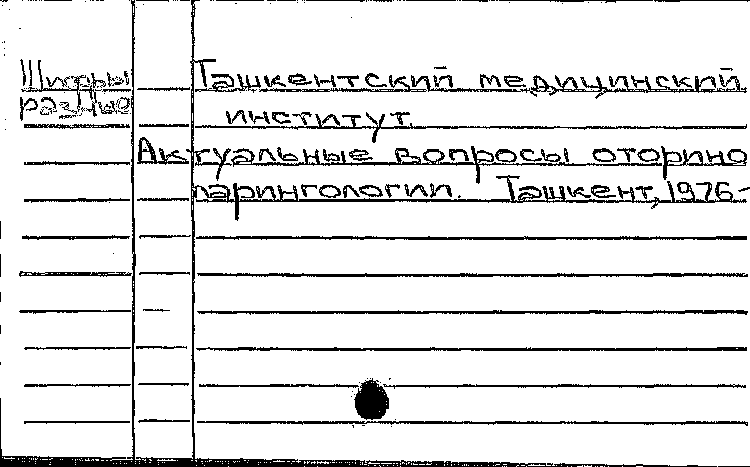 Шифры
разные
Ташкентский медицинский
институт.
Актуальные вопросы оторино
ларингологии. Ташкент, 1976-